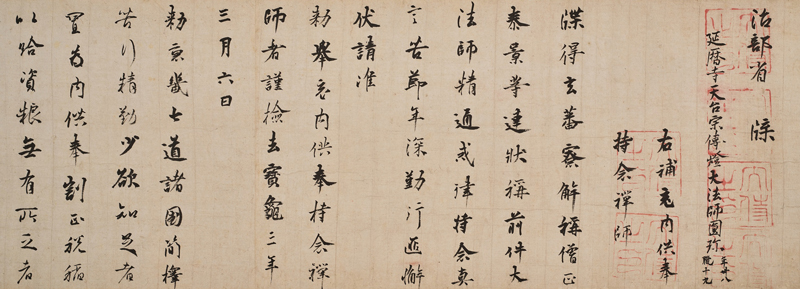 治部省　牒
延暦寺天台宗傳燈大法師圓珍 年卅八 臈十九
右補充内供奉
持念禪師
牒得玄蕃寮解稱僧正
泰景等連狀稱前件大
法師精通戒律持念真
言苦節年深勤行匪懈
伏請准
勅擧充内供奉持念禪
師者謹檢去寶龜三年
三月六日
勅京畿七道諸國簡擇
苦行精勤少欲知足者
置為内供奉割正税稲
以給資粮無有所乏者